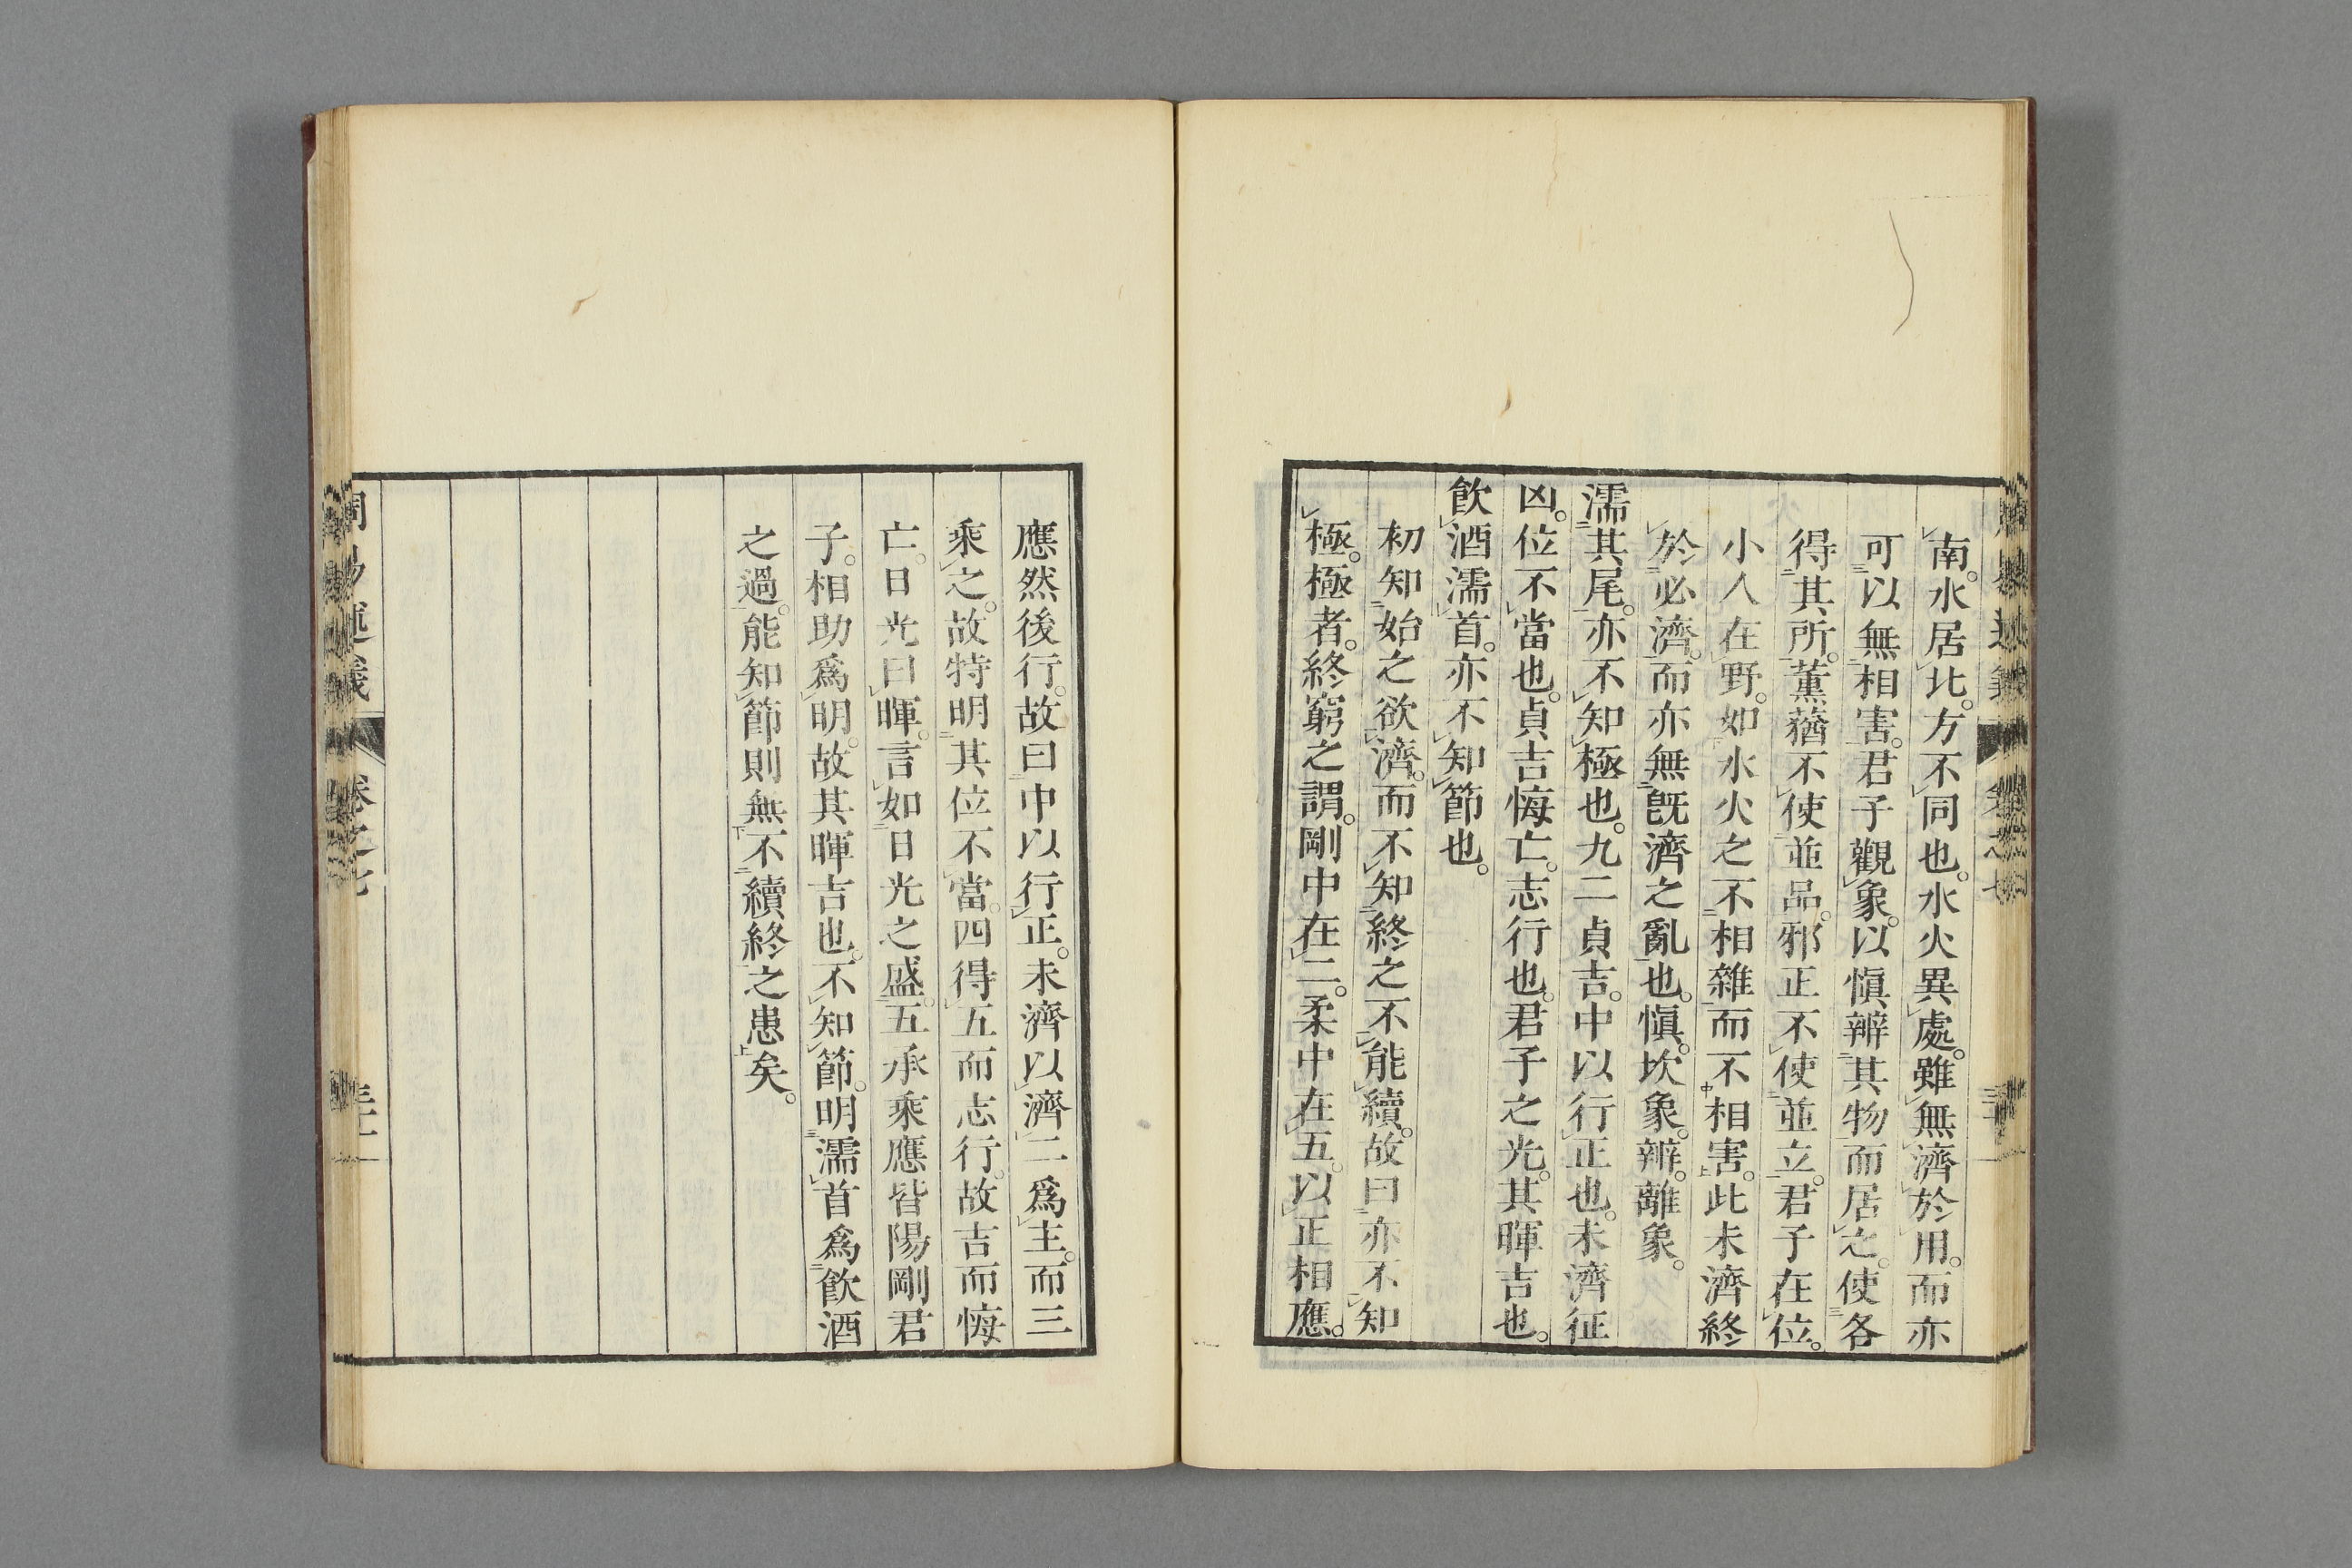 南。水居北。方不同也。水火異處。雖無濟於用。而亦
可以無相害。君子觀象。以愼辨其物而居之。使各
得其所。薰蕕不使並品。邪正不使並立。君子在位。
小人在野。如水火之不相雜而不相害。此未濟終
於必濟。而亦無旣濟之亂也。愼。坎象。辨。離象。
濡其尾。亦不知極也。九二貞吉。中以行正也。未濟征
凶。位不當也。貞吉悔亡。志行也。君子之光。其暉吉也。
飮酒濡首。亦不知節也。
初知始之欲濟。而不知終之不能續。故曰亦不知
極。極者。終窮之謂。剛中在二。柔中在五。以正相應。
應然後行。故曰中以行正。未濟以濟二爲主。而三
乘之。故特明其位不當。四得五而志行。故吉而悔
亡。日光曰暉。言如日光之盛。五承乘應皆陽剛君
子。相助爲明。故其暉吉也。不知節。明濡首爲飮酒
之過。能知節則無不續終之患矣。
周易述義 卷之七